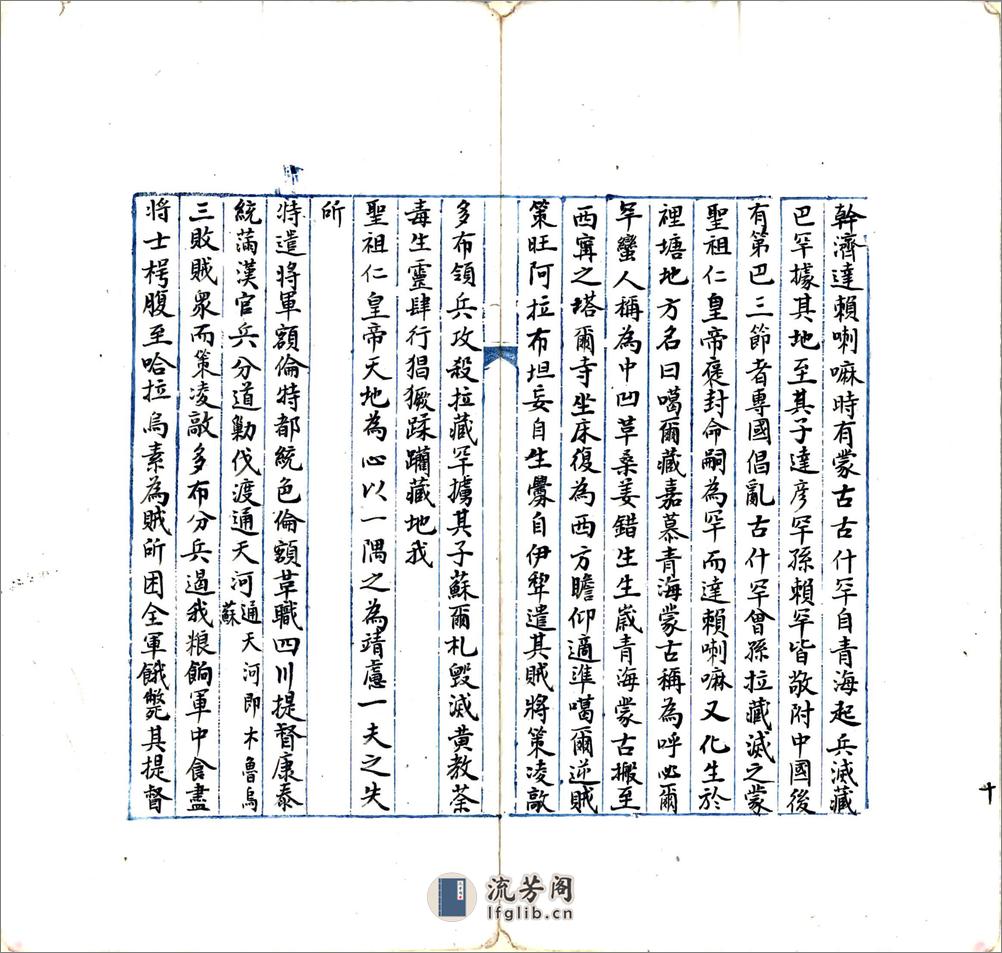 幹濟達賴喇嘛時有蒙古古什罕自青海起兵滅藏
巴罕據其地至其子達彦罕孫賴罕皆敬附中國後
有第巴三節者專國倡亂古什罕曾孫拉藏滅之蒙
聖祖仁皇帝褒封命嗣為罕而達賴喇嘛又化生於
裡塘地方名曰噶爾藏嘉慕青海蒙古稱為呼必爾
罕蠻人稱為中凹革桑姜錯生生嵗青海蒙古搬至
西寗之塔爾寺坐床復為西方瞻仰適準噶爾逆賊
策旺阿拉布坦妄自生釁自伊犂遣其賊將策凌敵
多布領兵攻殺拉藏罕擄其子蘇爾札毀滅黄教荼
毒生靈肆行猖獗蹂躪藏地我
聖祖仁皇帝天地為心以一隅之為靖慮一夫之失
所
特遣將軍額倫特都統色倫額革職四川提督康泰
統滿漢官兵分道勦伐渡通天河通天河即木魯烏
蘇
三敗賊眾而策凌敵多布分兵遏我粮餉軍中食盡
將士枵腹至哈拉烏素為賊所困全軍餓斃其提督
十
流芳阁
lfglib.cn